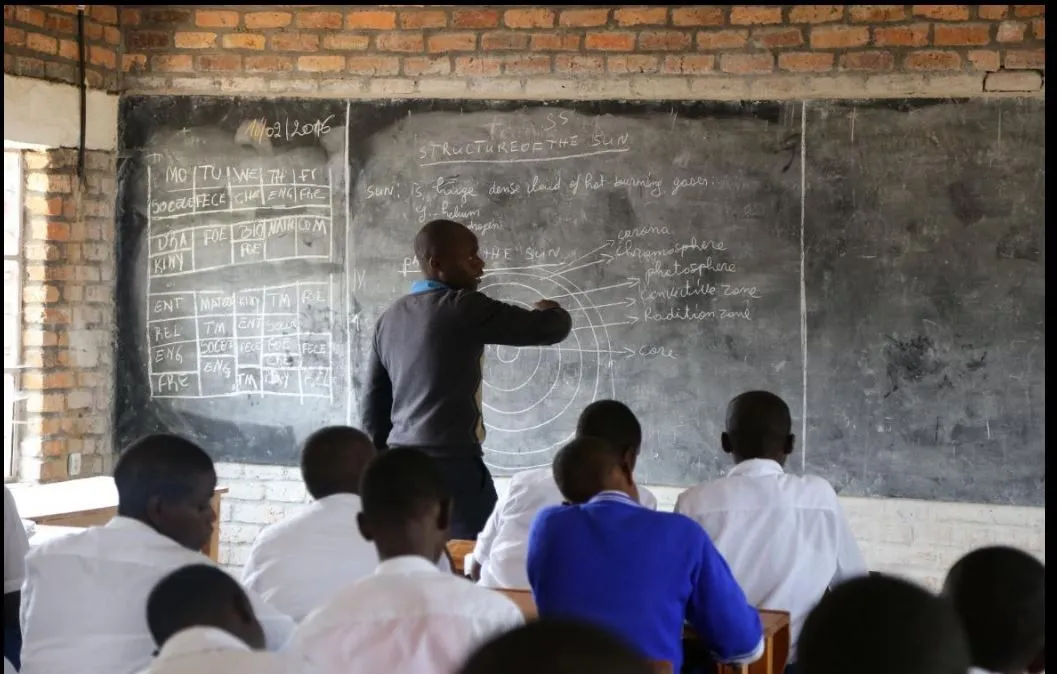 10/02/2016
MO TU WE TH FR
SOCEE FECE CHE ENG FRE
DRA FOE BIO MATH COM
KINY FOE
ENT MATEO KINY TM RE
REL TM ENT SOCIO
ENG SOCEE FECE FOE FECE
ENG
FRE TM
SS
STRUCTURE OF THE SUN
SUN: is huge dense cloud of hot burning gases.
helium
THE SUN
corona
chromosphere
photosphere
Convective zone
Radition zone
core